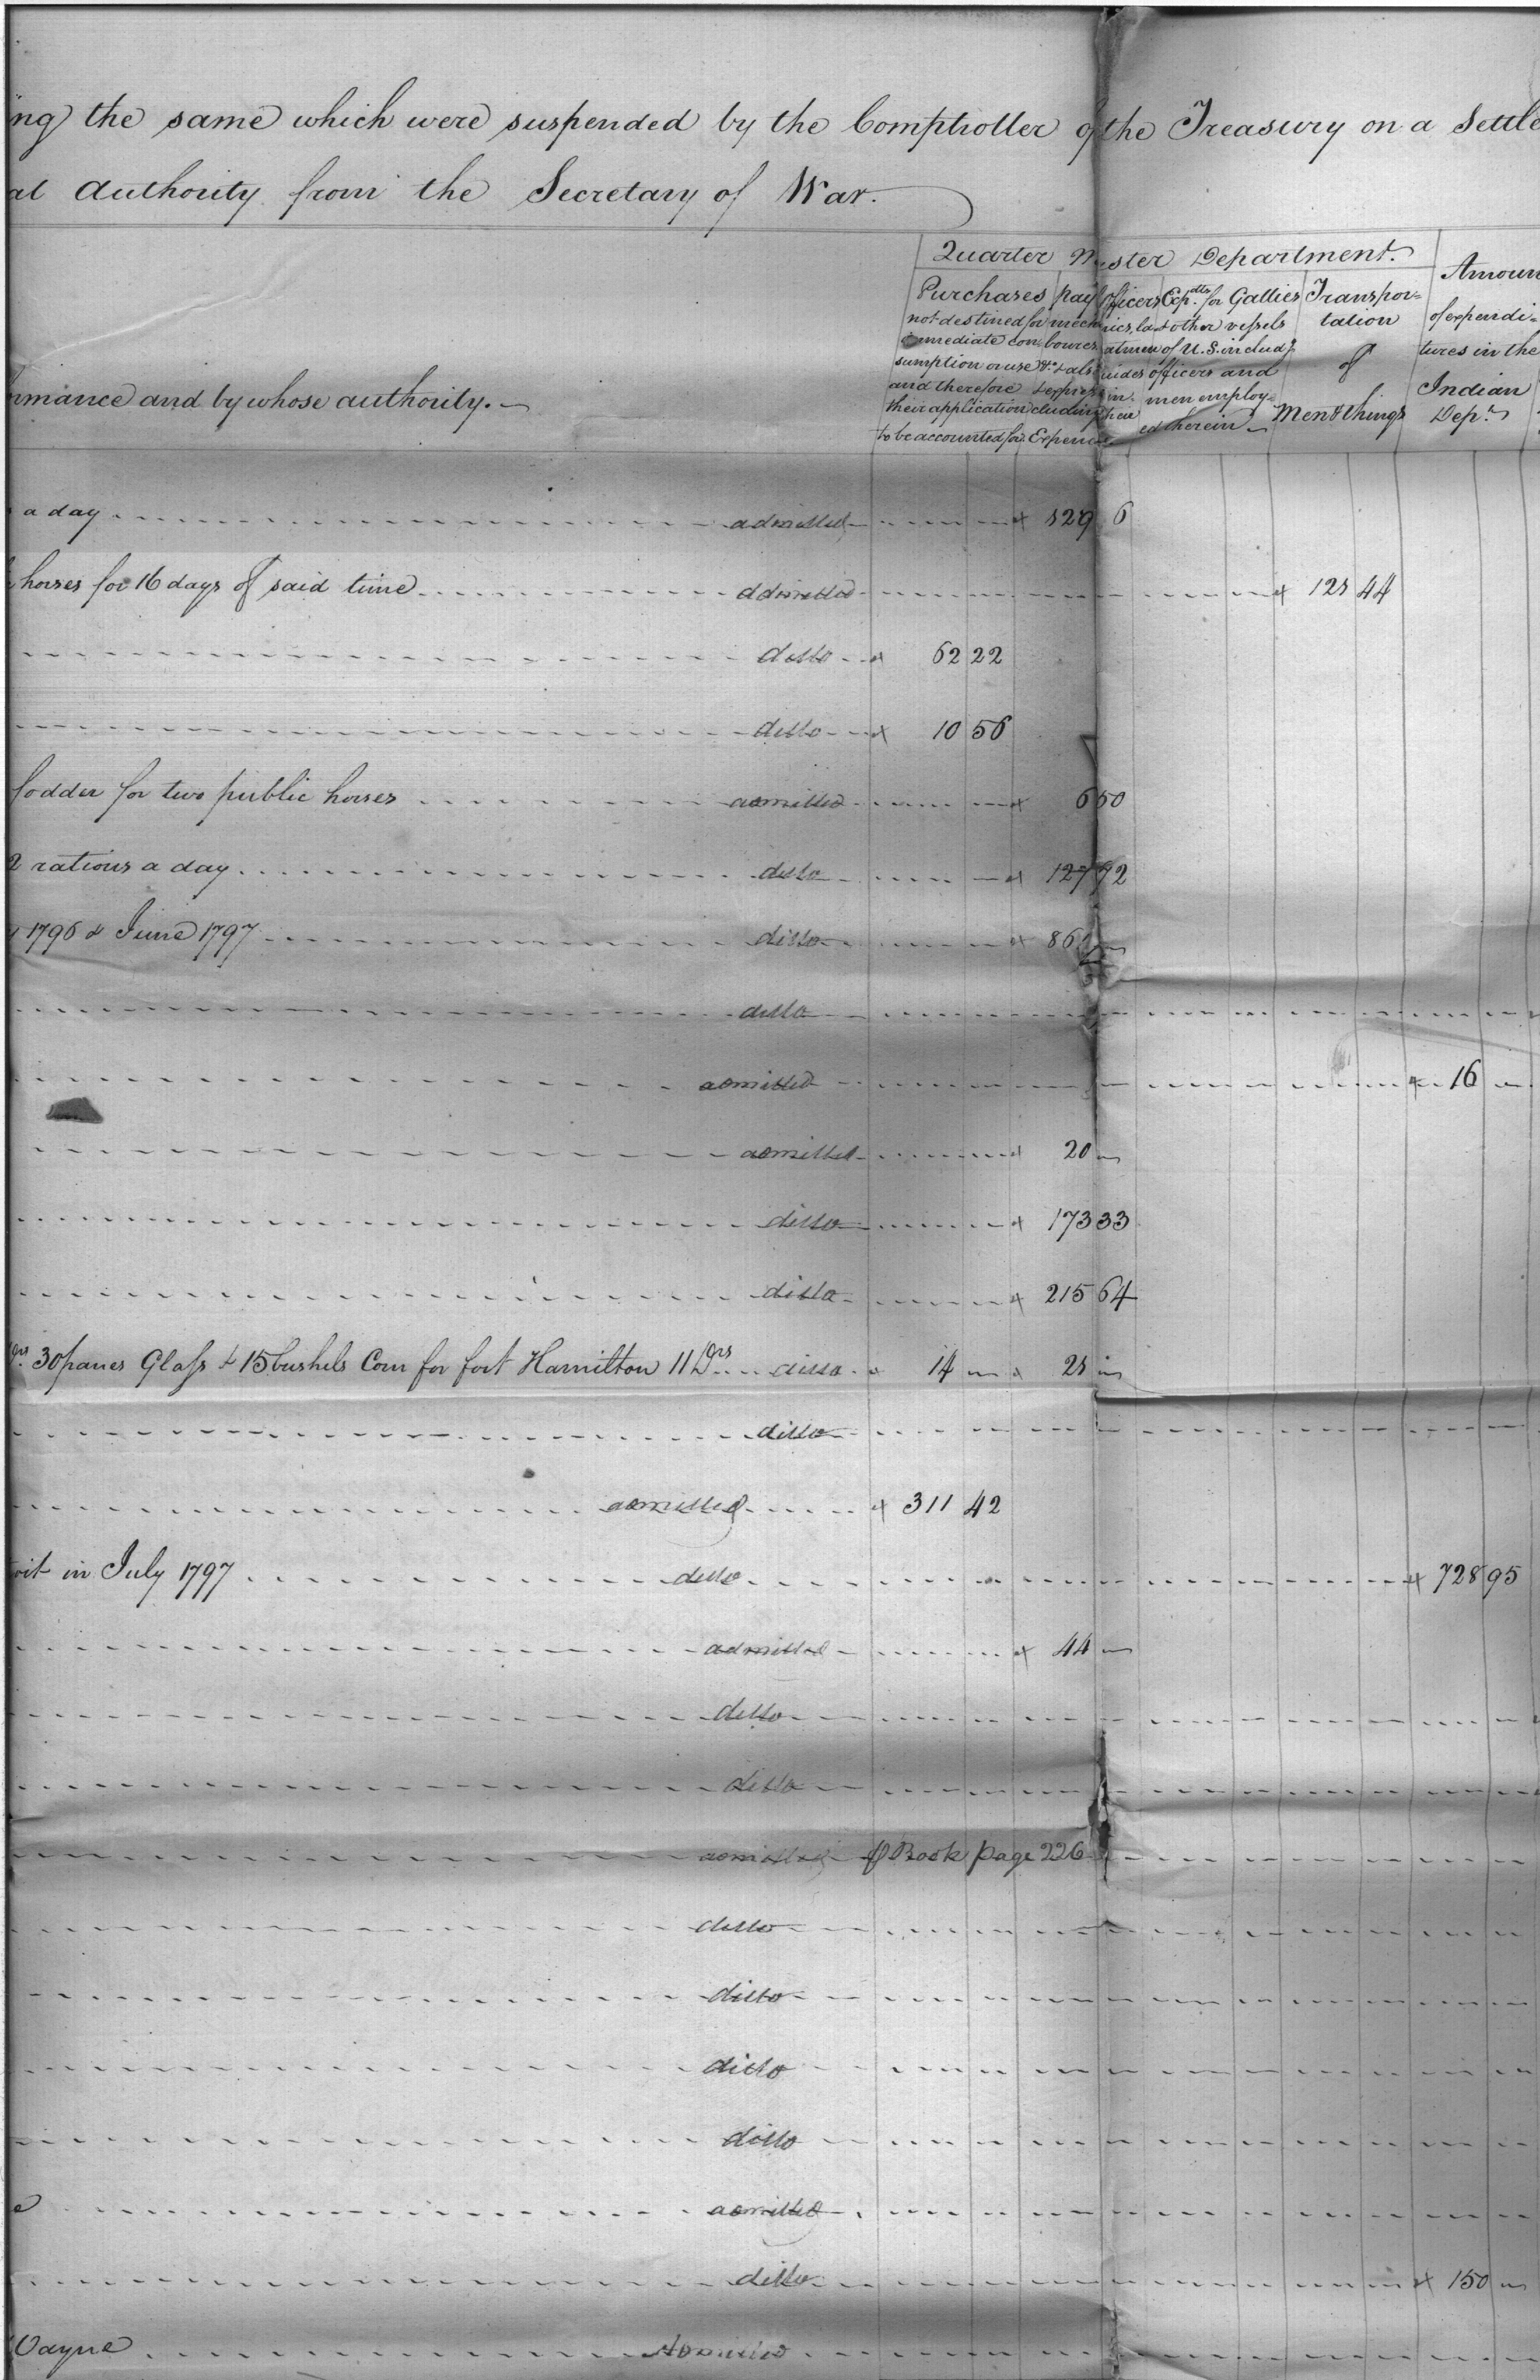 ing the same which were suspended by the Comptroller of the Treasury on a Settle
al Authority from the Secretary of War.
Quarter Master Department.
Amoun
of expendi=
tures in the
Indian
Dep.t
Purchases
not destined for
immediate con
sumption or use &c
and therefore
their application
to be accounted for
pay officers
mechanics, la
bourers
& also guides
& expresses in
cluding their
Expences
Exp.dts for Gallies
& other vessels
of U.S. includg
officers and
men employ=
ed therein
Transpor=
tation
of
Men & things
rmance and by whose authority.
a day admitted 129 6
horses for 16 days of said time admitted 128 44
ditto 62 22
ditto 10 56
fodder for two public horses admitted 6 50
2 rations a day ditto 127 92
1796 & June 1797 ditto 861
ditto
admitted 16
admitted 20
ditto 173 33
ditto 215 64
Drs 30 panes Glass & 15 bushels Corn for fort Hamilton 11 Drs ditto 14 28
ditto
admitted 311 42
oit in July 1797 ditto 728 95
admitted 44
ditto
ditto
admitted Book page 226
ditto
ditto
ditto
ditto
e admitted
ditto 150
Wayne Admitted